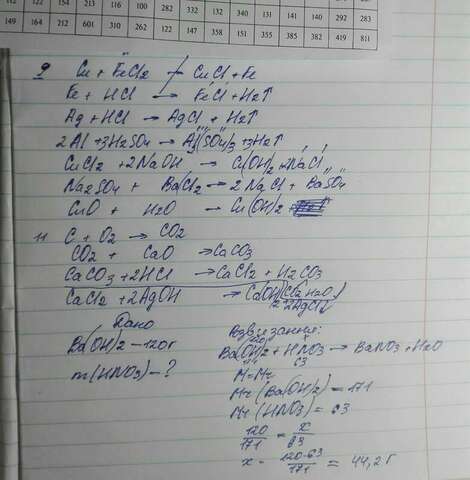 112 122 154 213 116 100 282 112 332 132 340 131 141 144 283
149 164 210 310 262 293 337 144 358 151 355 382 419 811
9 Cu + FeCl2 ↛ CuCl + Fe
Fe + HCl → FeCl + H2↑
Ag + HCl → AgCl + H2↑
2Al + 3H2SO4 → Al2(SO4)3 + 3H2↑
CuCl2 + 2NaOH → Cu(OH)2 + 2NaCl
Na2SO4 + BaCl2 → 2NaCl + BaSO4
CuO + H2O → Cu(OH)2
11 C + O2 → CO2
CO2 + CaO → CaCO3
CaCO3 + 2HCl → CaCl2 + H2CO3
CaCl2 + 2AgOH → Ca(OH)2
(CO2 H2O)
2AgCl↓
Дано
Ba(OH)2 – 120г
m(HNO3) – ?
Розв'язання:
120 x
Ba(OH)2 + HNO3 → BaNO3 + H2O
171 63
M = Mr
Mr (Ba(OH)2) = 171
Mr (HNO3) = 63
120/171 = x/63
x = 120·63/171 = 44,2 г